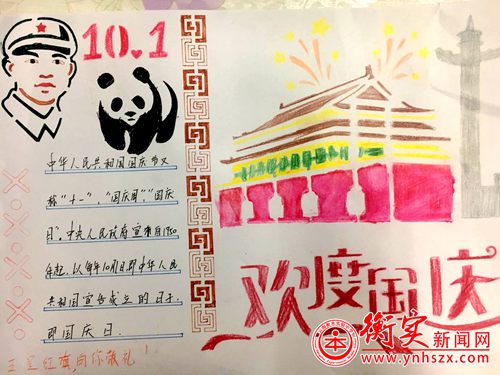 10.1
中华人民共和国国庆节又
称“十一”、“国庆节”、“国庆
日”。中央人民政府宣布自1950
年起,以每年10月1日即中华人民
共和国宣告成立的日子,
即国庆日.
五星红旗,向你敬礼!
欢度国庆
衡实新闻网
www.ynhszx.com